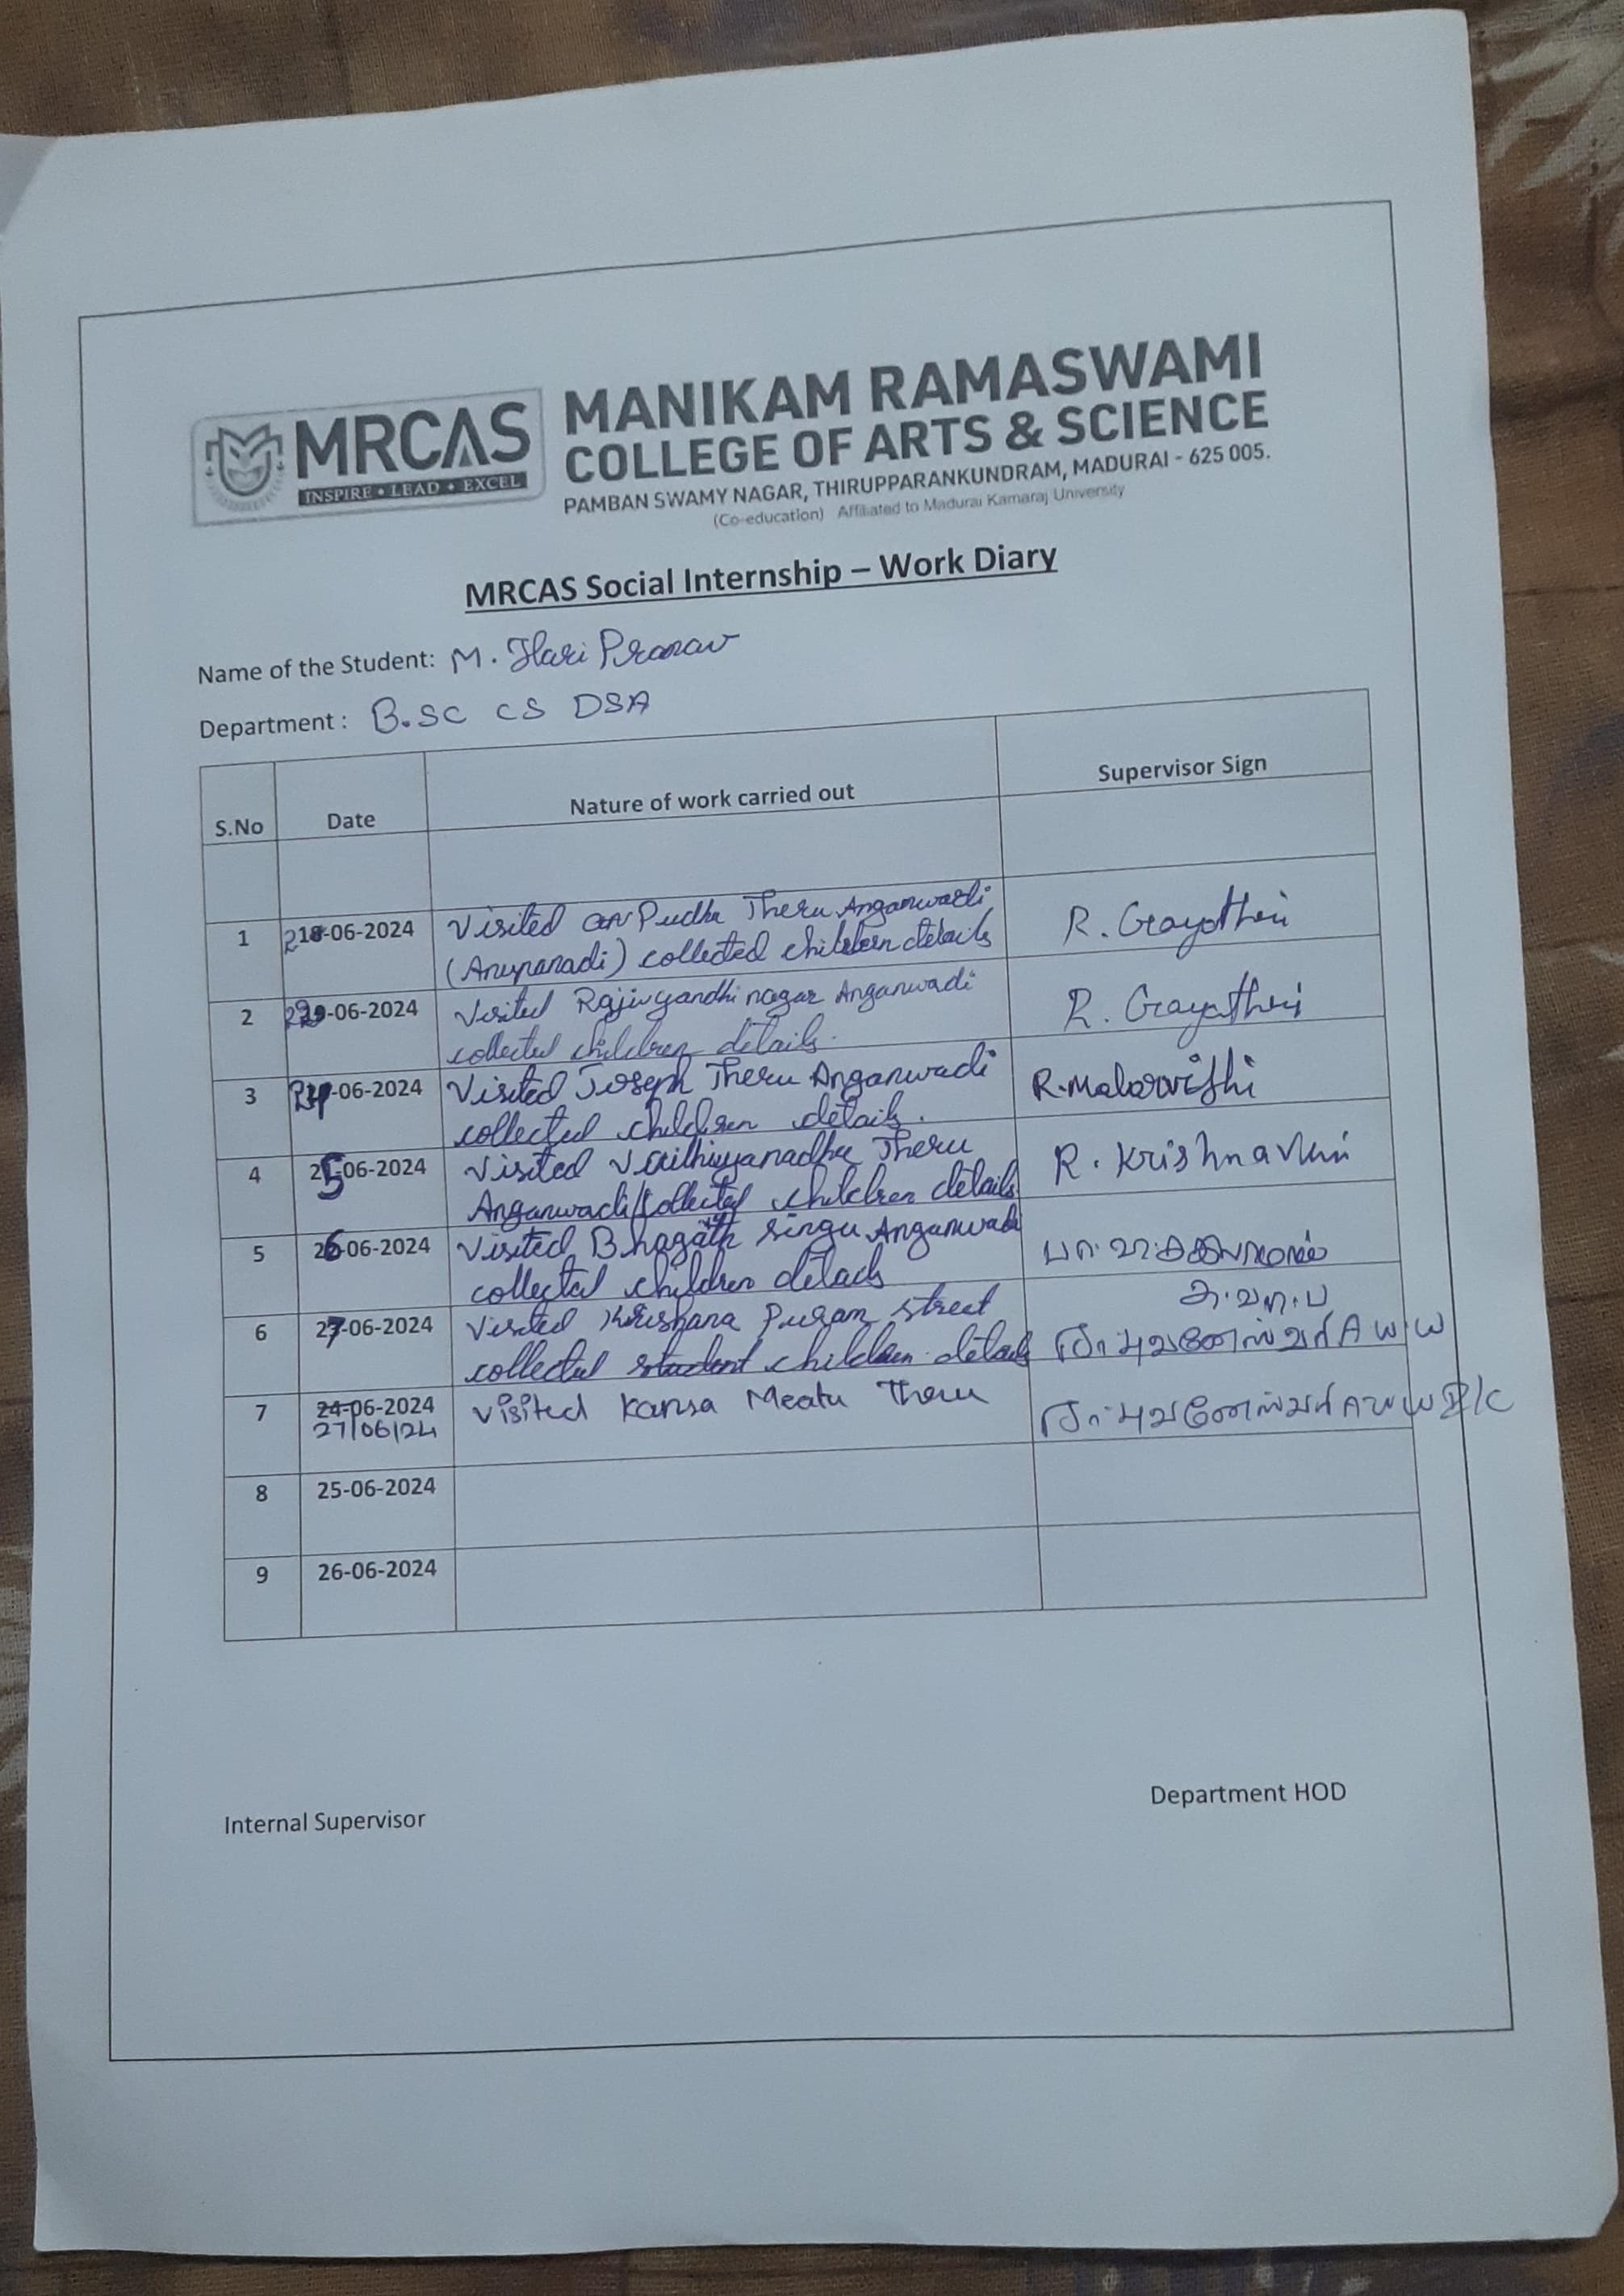 MRCAS
INSPIRE • LEAD • EXCEL
MANIKAM RAMASWAMI
COLLEGE OF ARTS & SCIENCE
PAMBAN SWAMY NAGAR, THIRUPPARANKUNDRAM, MADURAI - 625 005.
(Co-education) Affiliated to Madurai Kamaraj University
MRCAS Social Internship – Work Diary
Name of the Student: M. Hari Pranav
Department : B.SC CS DSA
S.No Date Nature of work carried out Supervisor Sign
1 -06-2024 Visited Pudhu Theru Anganwadi R. Gayathri
(Anupanadi) collected children details
2 -06-2024 Visited Rajivgandhi nagar Anganwadi R. Gayathri
collected children details.
3 -06-2024 Visited Joseph Theru Anganwadi R. Malarvishi
collected children details.
4 25-06-2024 Visited Theru
Anganwadi collected children details
5 26-06-2024 Visited Bhagath Singu Anganwadi
collected children details
6 27-06-2024 Visited Krishana Puram street
collected student children details
7 24-06-2024 Visited Kansa Meatu Theru
27/06/24
8 25-06-2024
9 26-06-2024
Internal Supervisor Department HOD